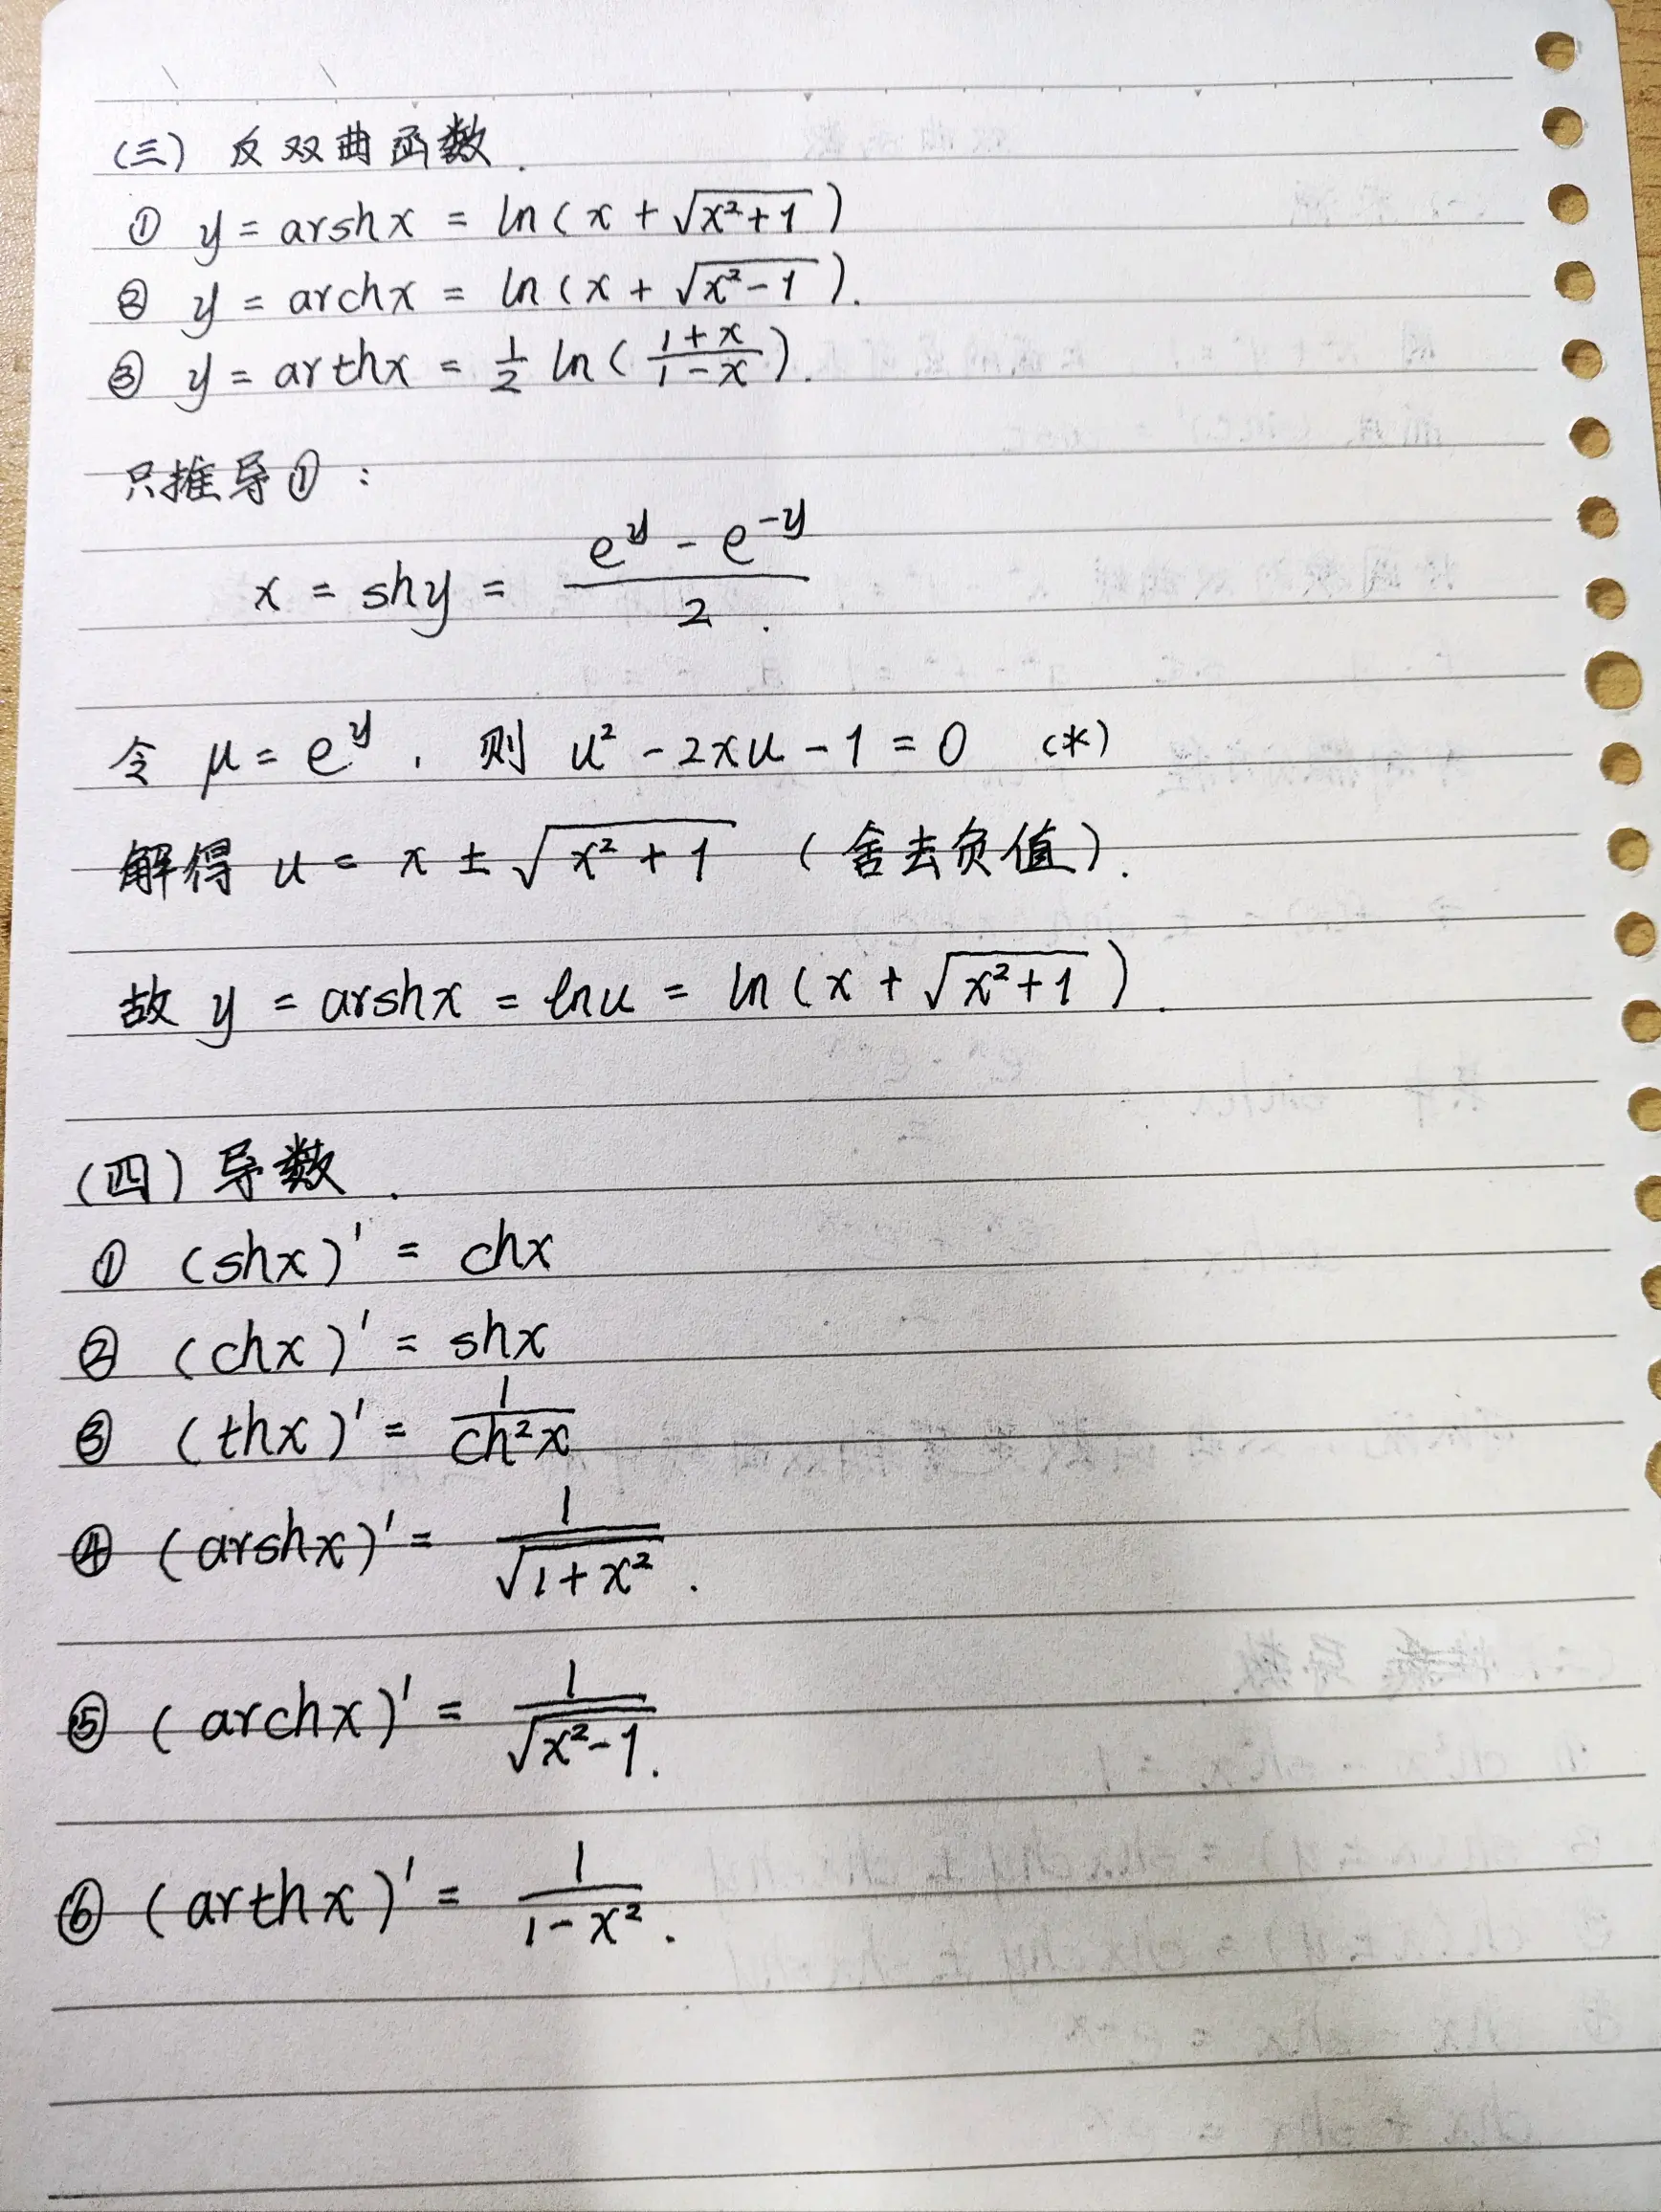 (三) 反双曲函数.
① y = arshx = ln(x + √(x²+1))
② y = archx = ln(x + √(x²-1)).
③ y = arthx = 1/2 ln((1+x)/(1-x)).
只推导①:
x = shy = (e^y - e^-y)/2.
令 μ = e^y, 则 u² - 2xu - 1 = 0 (*)
解得 u = x ± √(x²+1) (舍去负值).
故 y = arshx = lnu = ln(x + √(x²+1)).
(四) 导数.
① (shx)' = chx
② (chx)' = shx
③ (thx)' = 1/ch²x
④ (arshx)' = 1/√(1+x²).
⑤ (archx)' = 1/√(x²-1).
⑥ (arthx)' = 1/(1-x²).